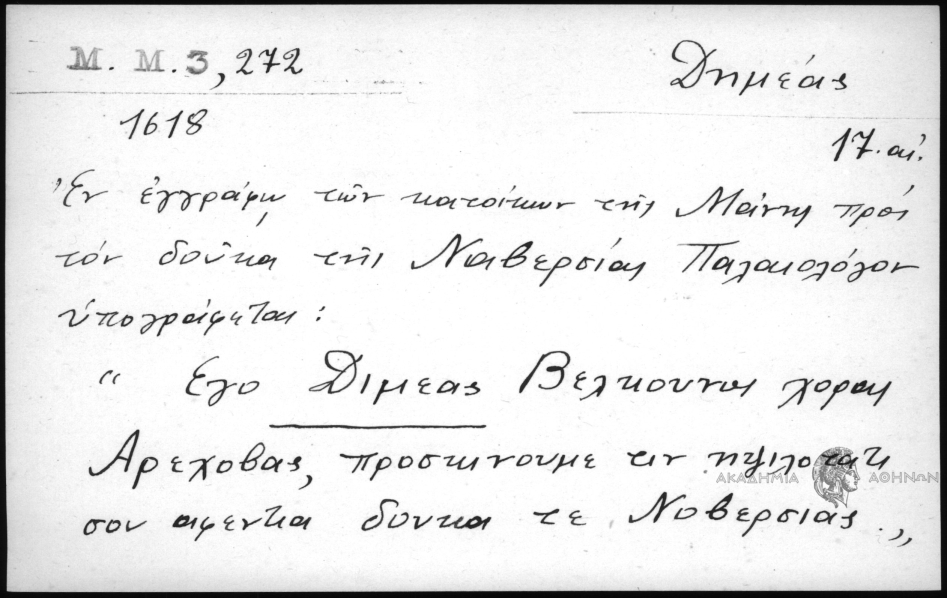 Μ. Μ. 3, 272
Δημέας
1618
17. αἰ.
Ἐν ἐγγράφῳ τῶν κατοίκων τῆς Μάνης πρὸς
τὸν δοῦκα τῆς Ναβερσίας Παλαιολόγον
ὑπογράφεται:
“ Εγο Διμεας Βελκουνας χορας
Αρεχοβας, προσκινουμε τιν ηψιλοτατι
σου αφεντια δουκα τε Νοβερσιας „
ΑΚΑΔΗΜΙΑ ΑΘΗΝΩΝ